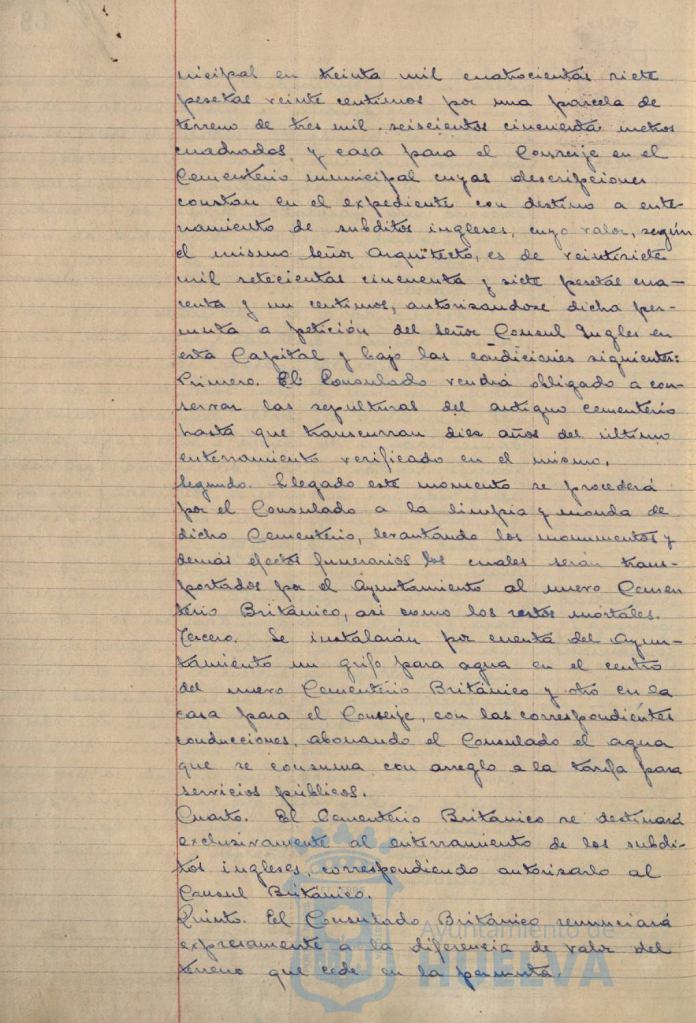 nicipal en treinta mil cuatrocientas siete
pesetas veinte centimos por una parcela de
terreno de tres mil seiscientos cincuenta metros
cuadrados y casa para el Conserje en el
Cementerio municipal cuyas descripciones
constan en el expediente con destino a ente-
rramiento de subditos ingleses, cuyo valor, según
el mismo Señor Arquitecto, es de veintisiete
mil setecientas cincuenta y siete pesetas cua-
renta y un centimos, autorizandose dicha per-
muta a petición del Señor Consul Ingles en
esta Capital y bajo las condiciones siguientes:
Primero. El Consulado vendrá obligado a con-
servar las sepulturas del antiguo cementerio
hasta que transcurran diez años del último
enterramiento verificado en el mismo.
Segundo. Llegado este momento se procederá
por el Consulado a la limpia y monda de
dicho Cementerio, levantando los monumentos y
demás efectos funerarios los cuales serán trans-
portados por el Ayuntamiento al nuevo Cemen
terio Británico, asi como los restos mortales.
Tercero. Se instalarán por cuenta del Ayun-
tamiento un grifo para agua en el centro
del nuevo Cementerio Británico y otro en la
casa para el Conserje, con las correspondientes
conducciones, abonando el Consulado el agua
que se consuma con arreglo a la tarifa para
servicios públicos.
Cuarto. El Cementerio Británico se destinará
exclusivamente al enterramiento de los subdi-
tos ingleses, correspondiendo autorizarlo al
Consul Británico.
Quinto. El Consulado Británico renunciará
expresamente a la diferencia de valor del
terreno que cede en la permuta.
Ayuntamiento de
HUELVA